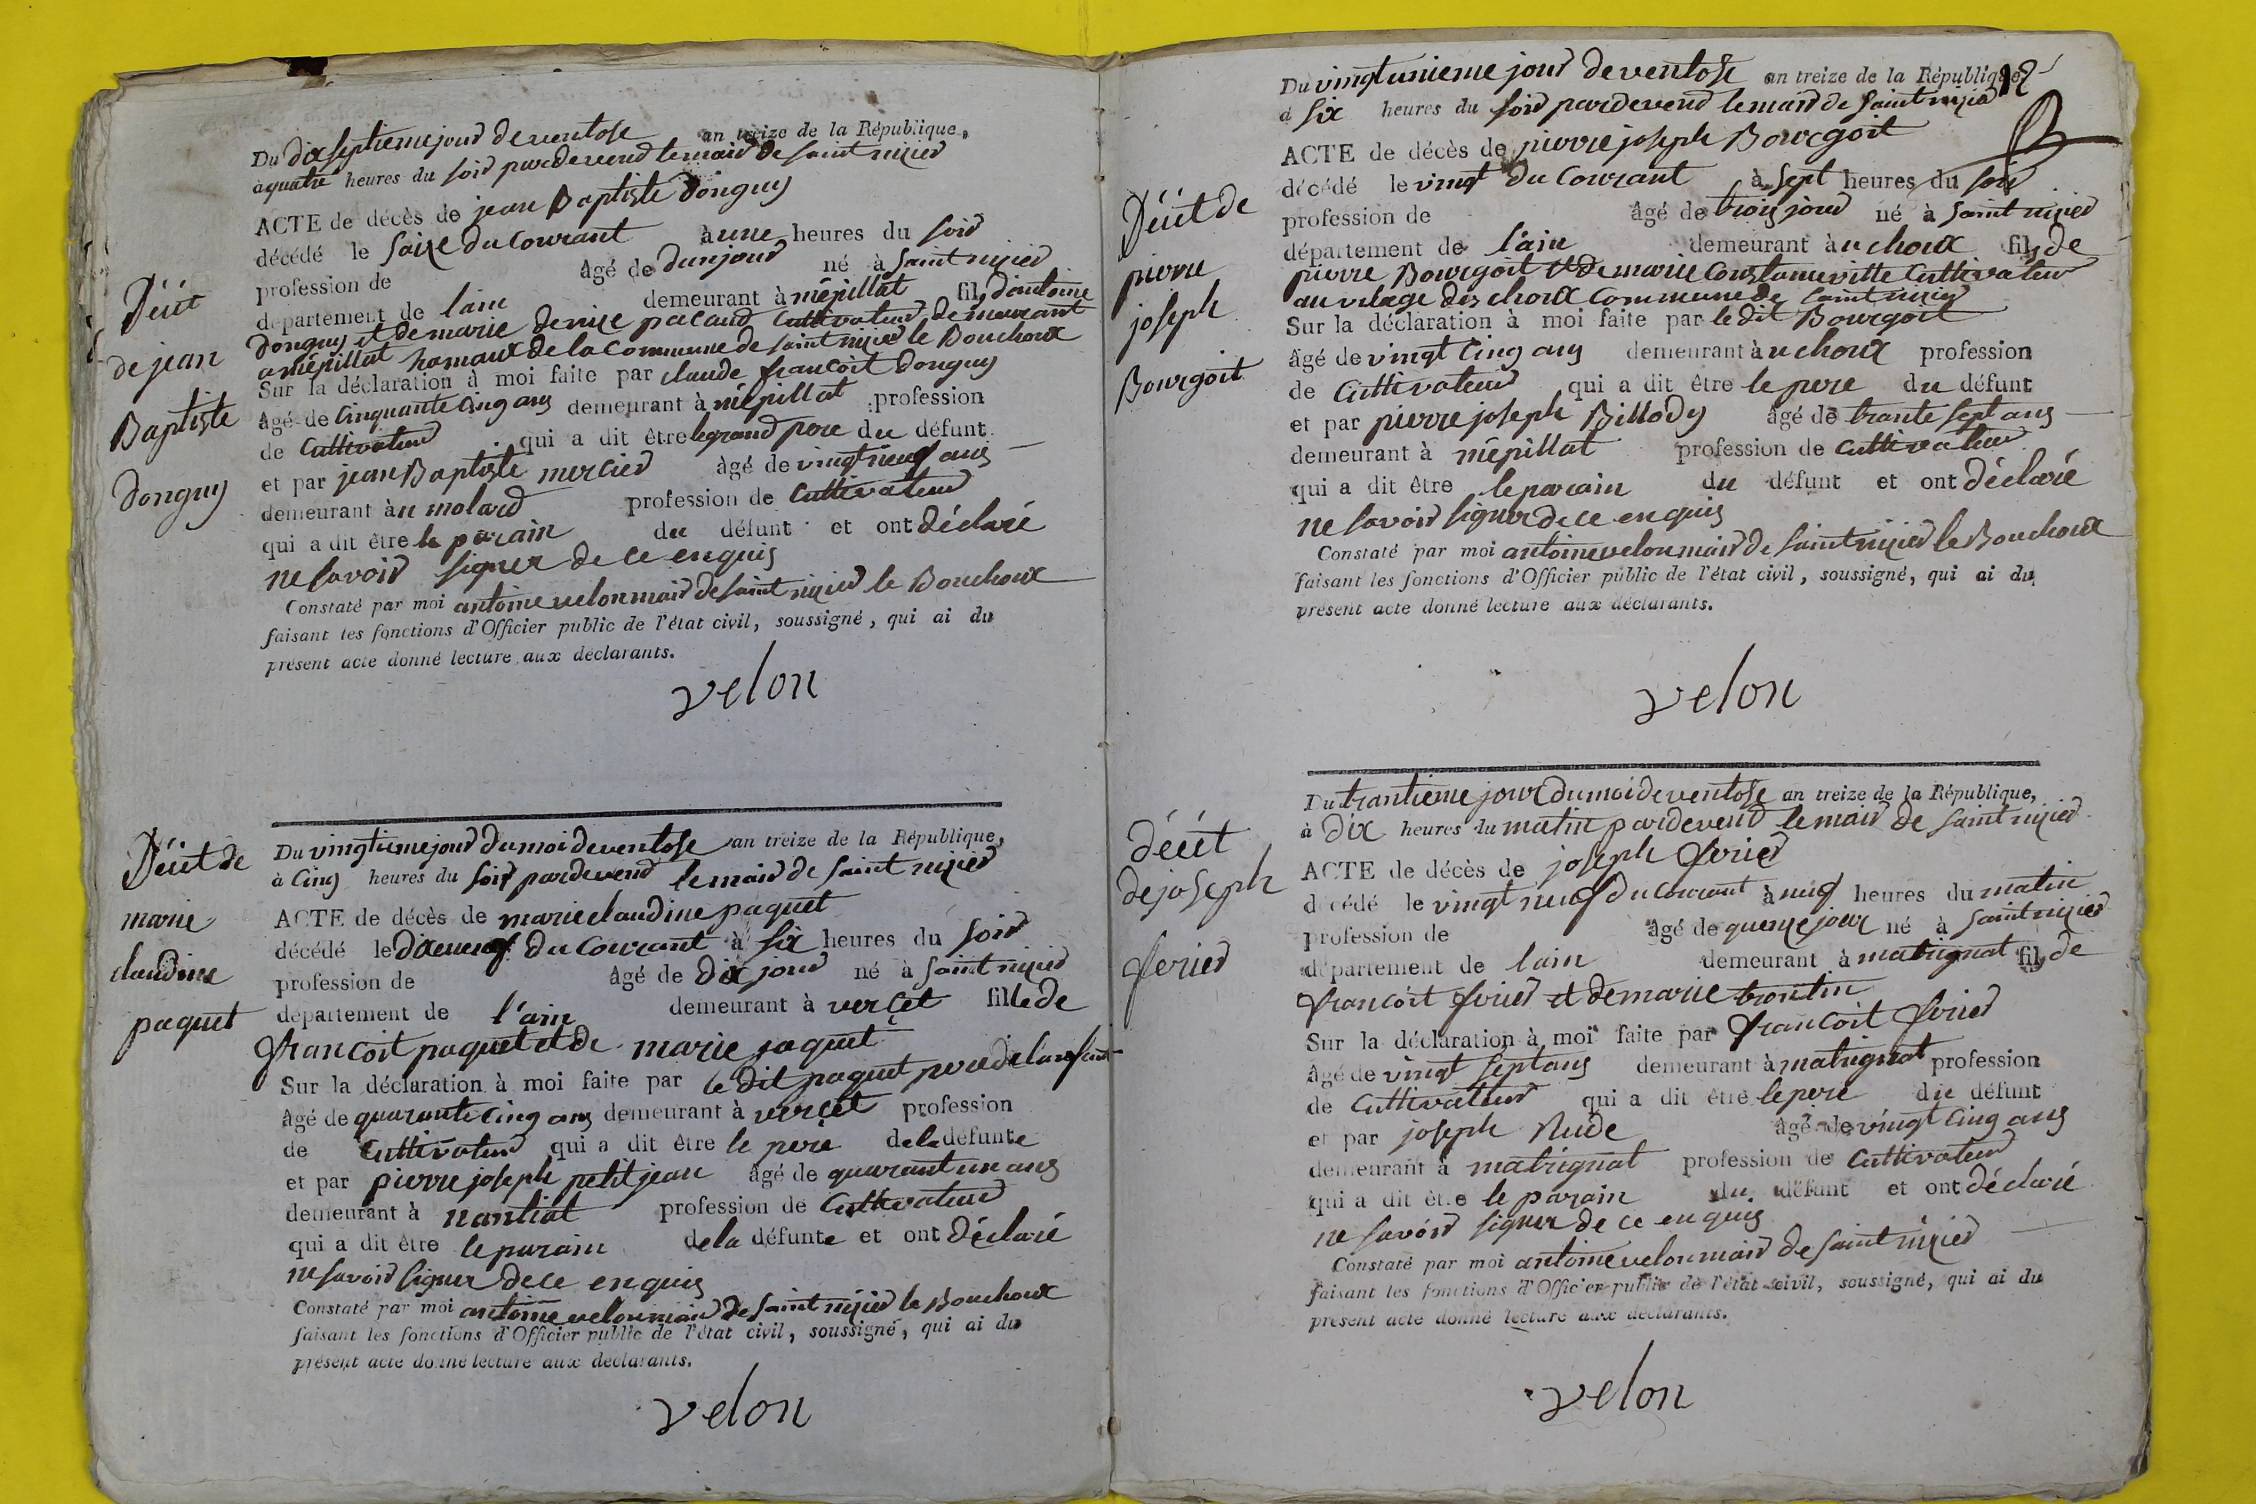 Décét
de jean
Baptiste
donguy
Du dixseptieme jour de ventose an treize de la République,
à quatre heures du soir pardevend le maire de saint nizier
ACTE de décès de jean Baptiste donguy
décédé le saize du courant à une heures du soir
profession de âgé de dun jour né à saint nizier
département de lain demeurant à mépillat fils dantoine
donguy et de marie denise pacaud cultivateur demeurant
a mépillat hamaux de la commune de saint nizier le Bouchoux
Sur la déclaration à moi faite par claude francoit donguy
âgé de cinquante cinq ans demeurant à mépillat profession
de cultivateur qui a dit être le grand pere du défunt
et par jean Baptiste mercier âgé de vingt neuf ans
demeurant à u molard profession de cultivateur
qui a dit être le parain du défunt et ont déclaré
ne savoir signer de ce enquis
Constaté par moi antoine velon maire de saint nizier le Bouchoux
faisant les fonctions d'Officier public de l'état civil, soussigné, qui ai du
présent acte donné lecture aux déclarants.
velon
Décét de
marie
claudine
paquet
Du vingtieme jour du moi de ventose an treize de la République,
à cinq heures du soir pardevend le maire de saint nizier
ACTE de décès de marie claudine paquet
décédé le dixneuf du courant à six heures du soir
profession de âgé de dix jour né à saint nizier
département de l'ain demeurant à verçet fille de
francoit paquet et de marie jaquet
Sur la déclaration à moi faite par le dit paquet pere de lanfant
âgé de quarante cinq ans demeurant à verçet profession
de cultivateur qui a dit être le pere de la défunte
et par pierre joseph petit jean âgé de quarant un ans
demeurant à nantiat profession de cultivateur
qui a dit être le parain de la défunte et ont déclaré
ne savoir signer de ce enquis
Constaté par moi antoine velon maire de saint nizier le Bouchoux
faisant les fonctions d'Officier public de l'état civil, soussigné, qui ai du
présent acte donné lecture aux déclarants.
velon
Décét de
pierre
joseph
Bourgoit
Du vingtunieme jour de ventose an treize de la République,
à six heures du soir pardevend le maire de saint nizier
ACTE de décès de pierre joseph Bourgoit
décédé le vingt du courant à sept heures du soir
profession de âgé de trois jour né à saint nizier
département de l'ain demeurant à u choux fils de
pierre Bourgoit et de marie Constance vitte cultivateur
au vilage des choux commune de saint nizier
Sur la déclaration à moi faite par le dit Bourgoit
âgé de vingt cinq ans demeurant à u choux profession
de cultivateur qui a dit être le pere du défunt
et par pierre joseph Billody âgé de trante sept ans
demeurant à mépillat profession de cultivateur
qui a dit être le parain du défunt et ont déclaré
ne savoir signer de ce enquis
Constaté par moi antoine velon maire de saint nizier le Bouchoux
faisant les fonctions d'Officier public de l'état civil, soussigné, qui ai du
présent acte donné lecture aux déclarants.
velon
décét
de joseph
ferier
Du trantieme jour du moi de ventose an treize de la République,
à dix heures du matin pardevend le maire de saint nizier
ACTE de décès de joseph ferier
décédé le vingt neuf du courant à neuf heures du matin
profession de âgé de quenze jour né à saint nizier
département de lain demeurant à matrignat fils de
francoit ferier et de marie trontin
Sur la déclaration à moi faite par francoit ferier
âgé de vingt sept ans demeurant à matrignat profession
de cultivateur qui a dit être le pere du défunt
et par joseph Rude âgé de vingt cinq ans
demeurant à matrignat profession de cultivateur
qui a dit être le parain du défunt et ont déclaré
ne savoir signer de ce enquis
Constaté par moi antoine velon maire de saint nizier
faisant les fonctions d'Officier public de l'état civil, soussigné, qui ai du
présent acte donné lecture aux déclarants.
velon